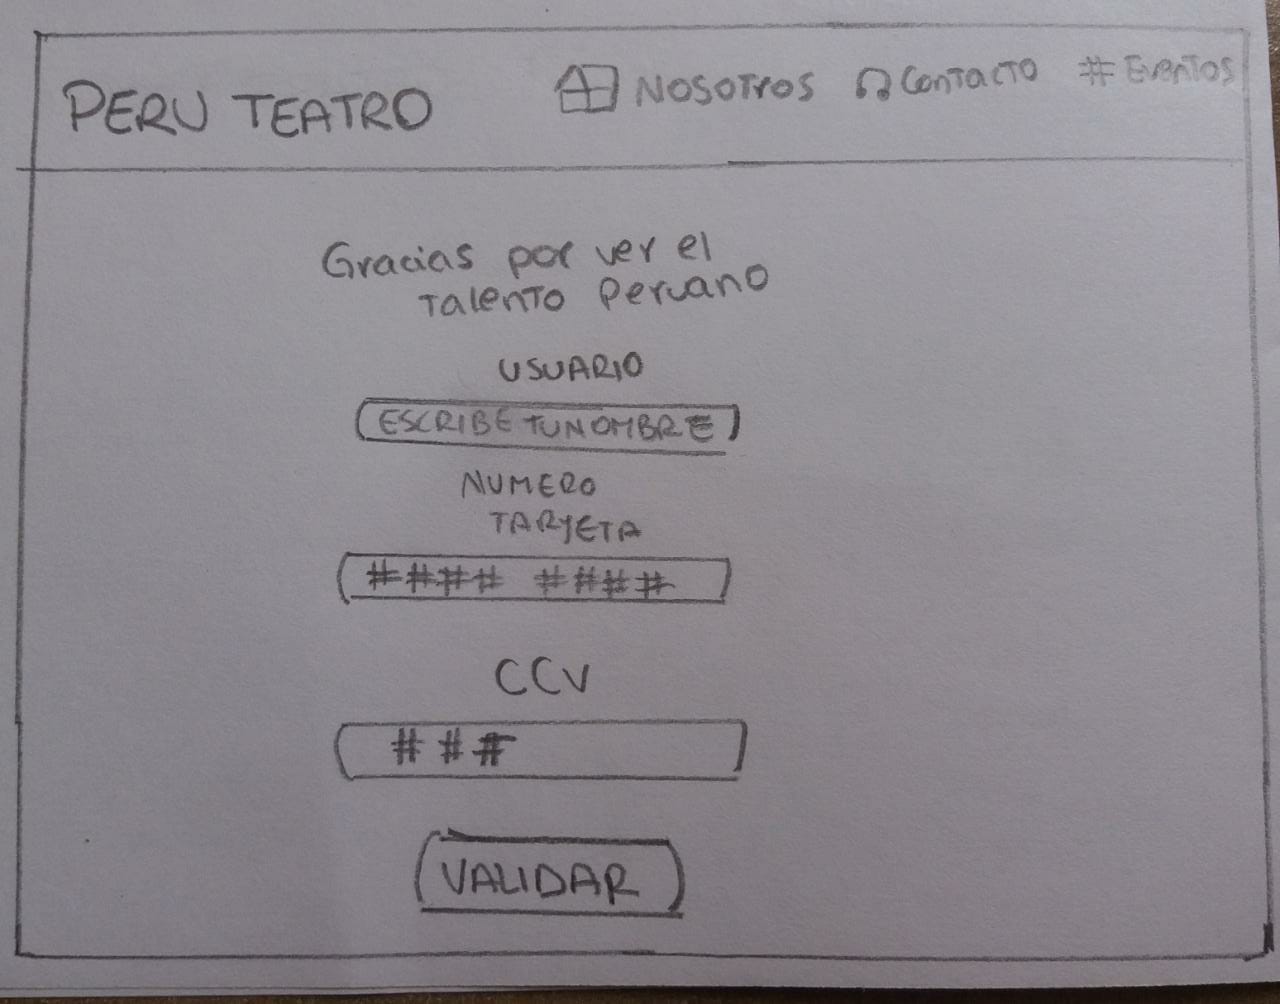 PERU TEATRO
NOSOTROS
Contacto
# EVENTOS
Gracias por ver el
Talento Peruano
USUARIO
ESCRIBE TU NOMBRE
NUMERO
TARJETA
#### ####
CCV
###
VALIDAR